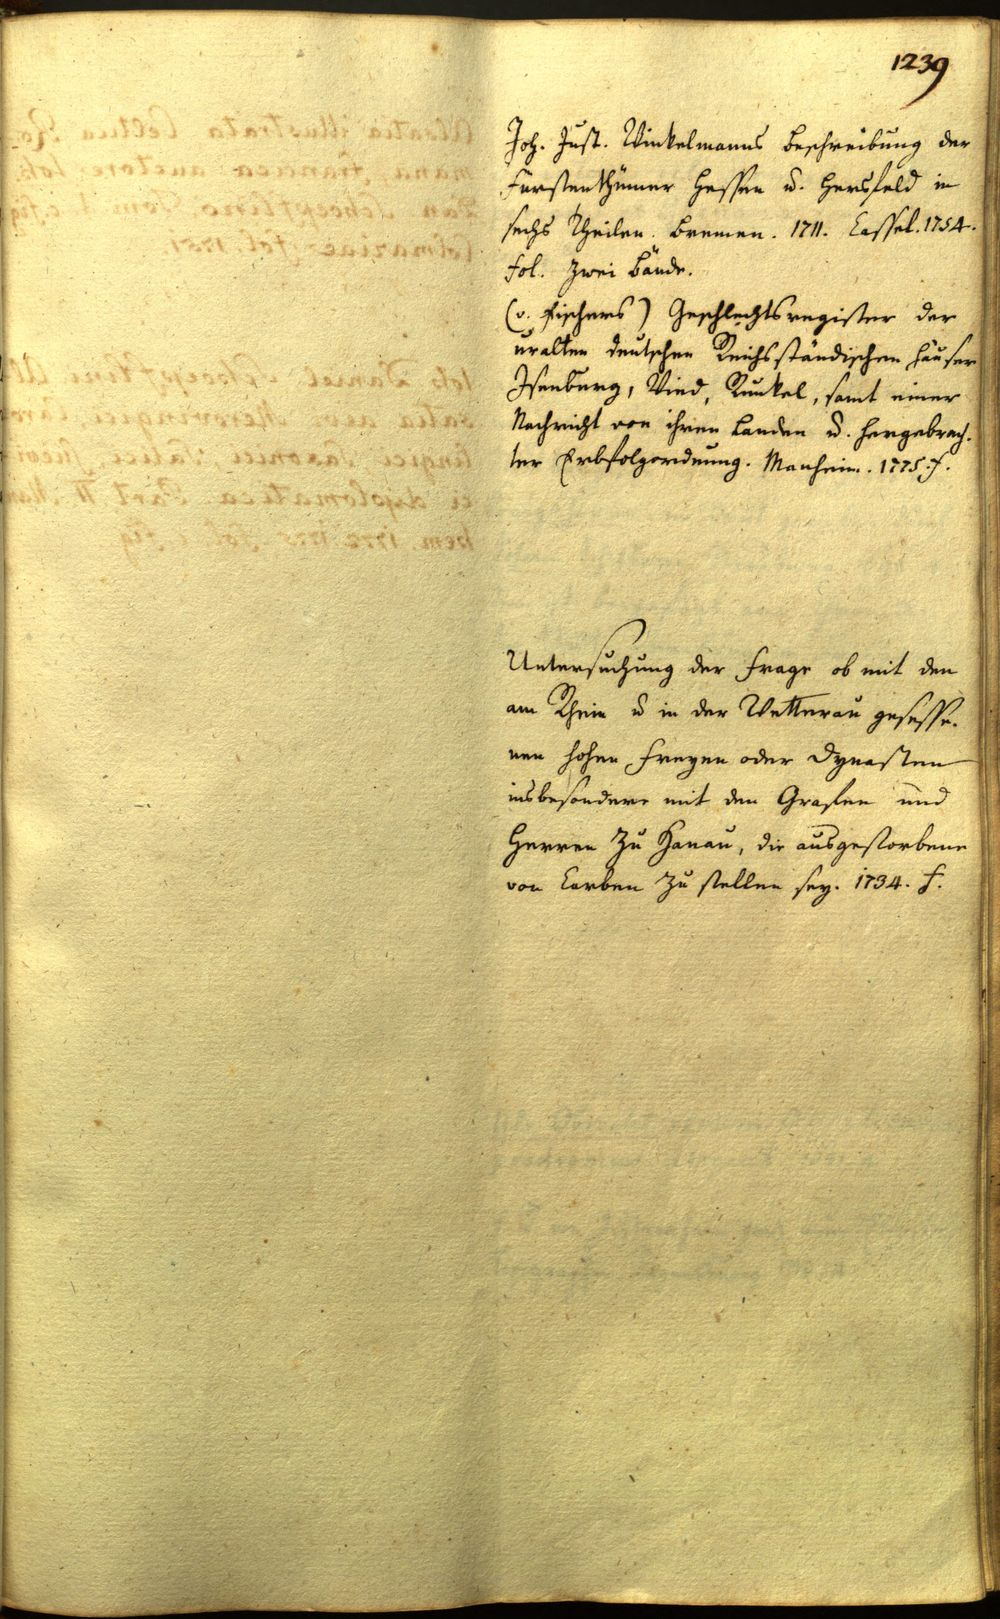 1239
Joh. Just. Winkelmanns Beschreibung der
Fürstenthümer Hessen u. Hersfeld in
sechs Theilen. Bremen. 1711. Cassel. 1754.
fol. zwei Bände.
(v. Fischers) Geschlechtsregister der
uralten deutschen Reichsständischen Häuser
Isenburg, Wied, Runkel, samt einer
Nachricht von ihren Landen u. hergebrach-
ter Erbfolgordnung. Manheim. 1775. f.
Untersuchung der Frage ob mit den
am Rhein u in der Wetterau gesesse-
nen hohen Freyen oder Dynasten
insbesondere mit den Grafen und
Herren zu Hanau, die ausgestorbene
von Carben zu stellen sey. 1734. f.